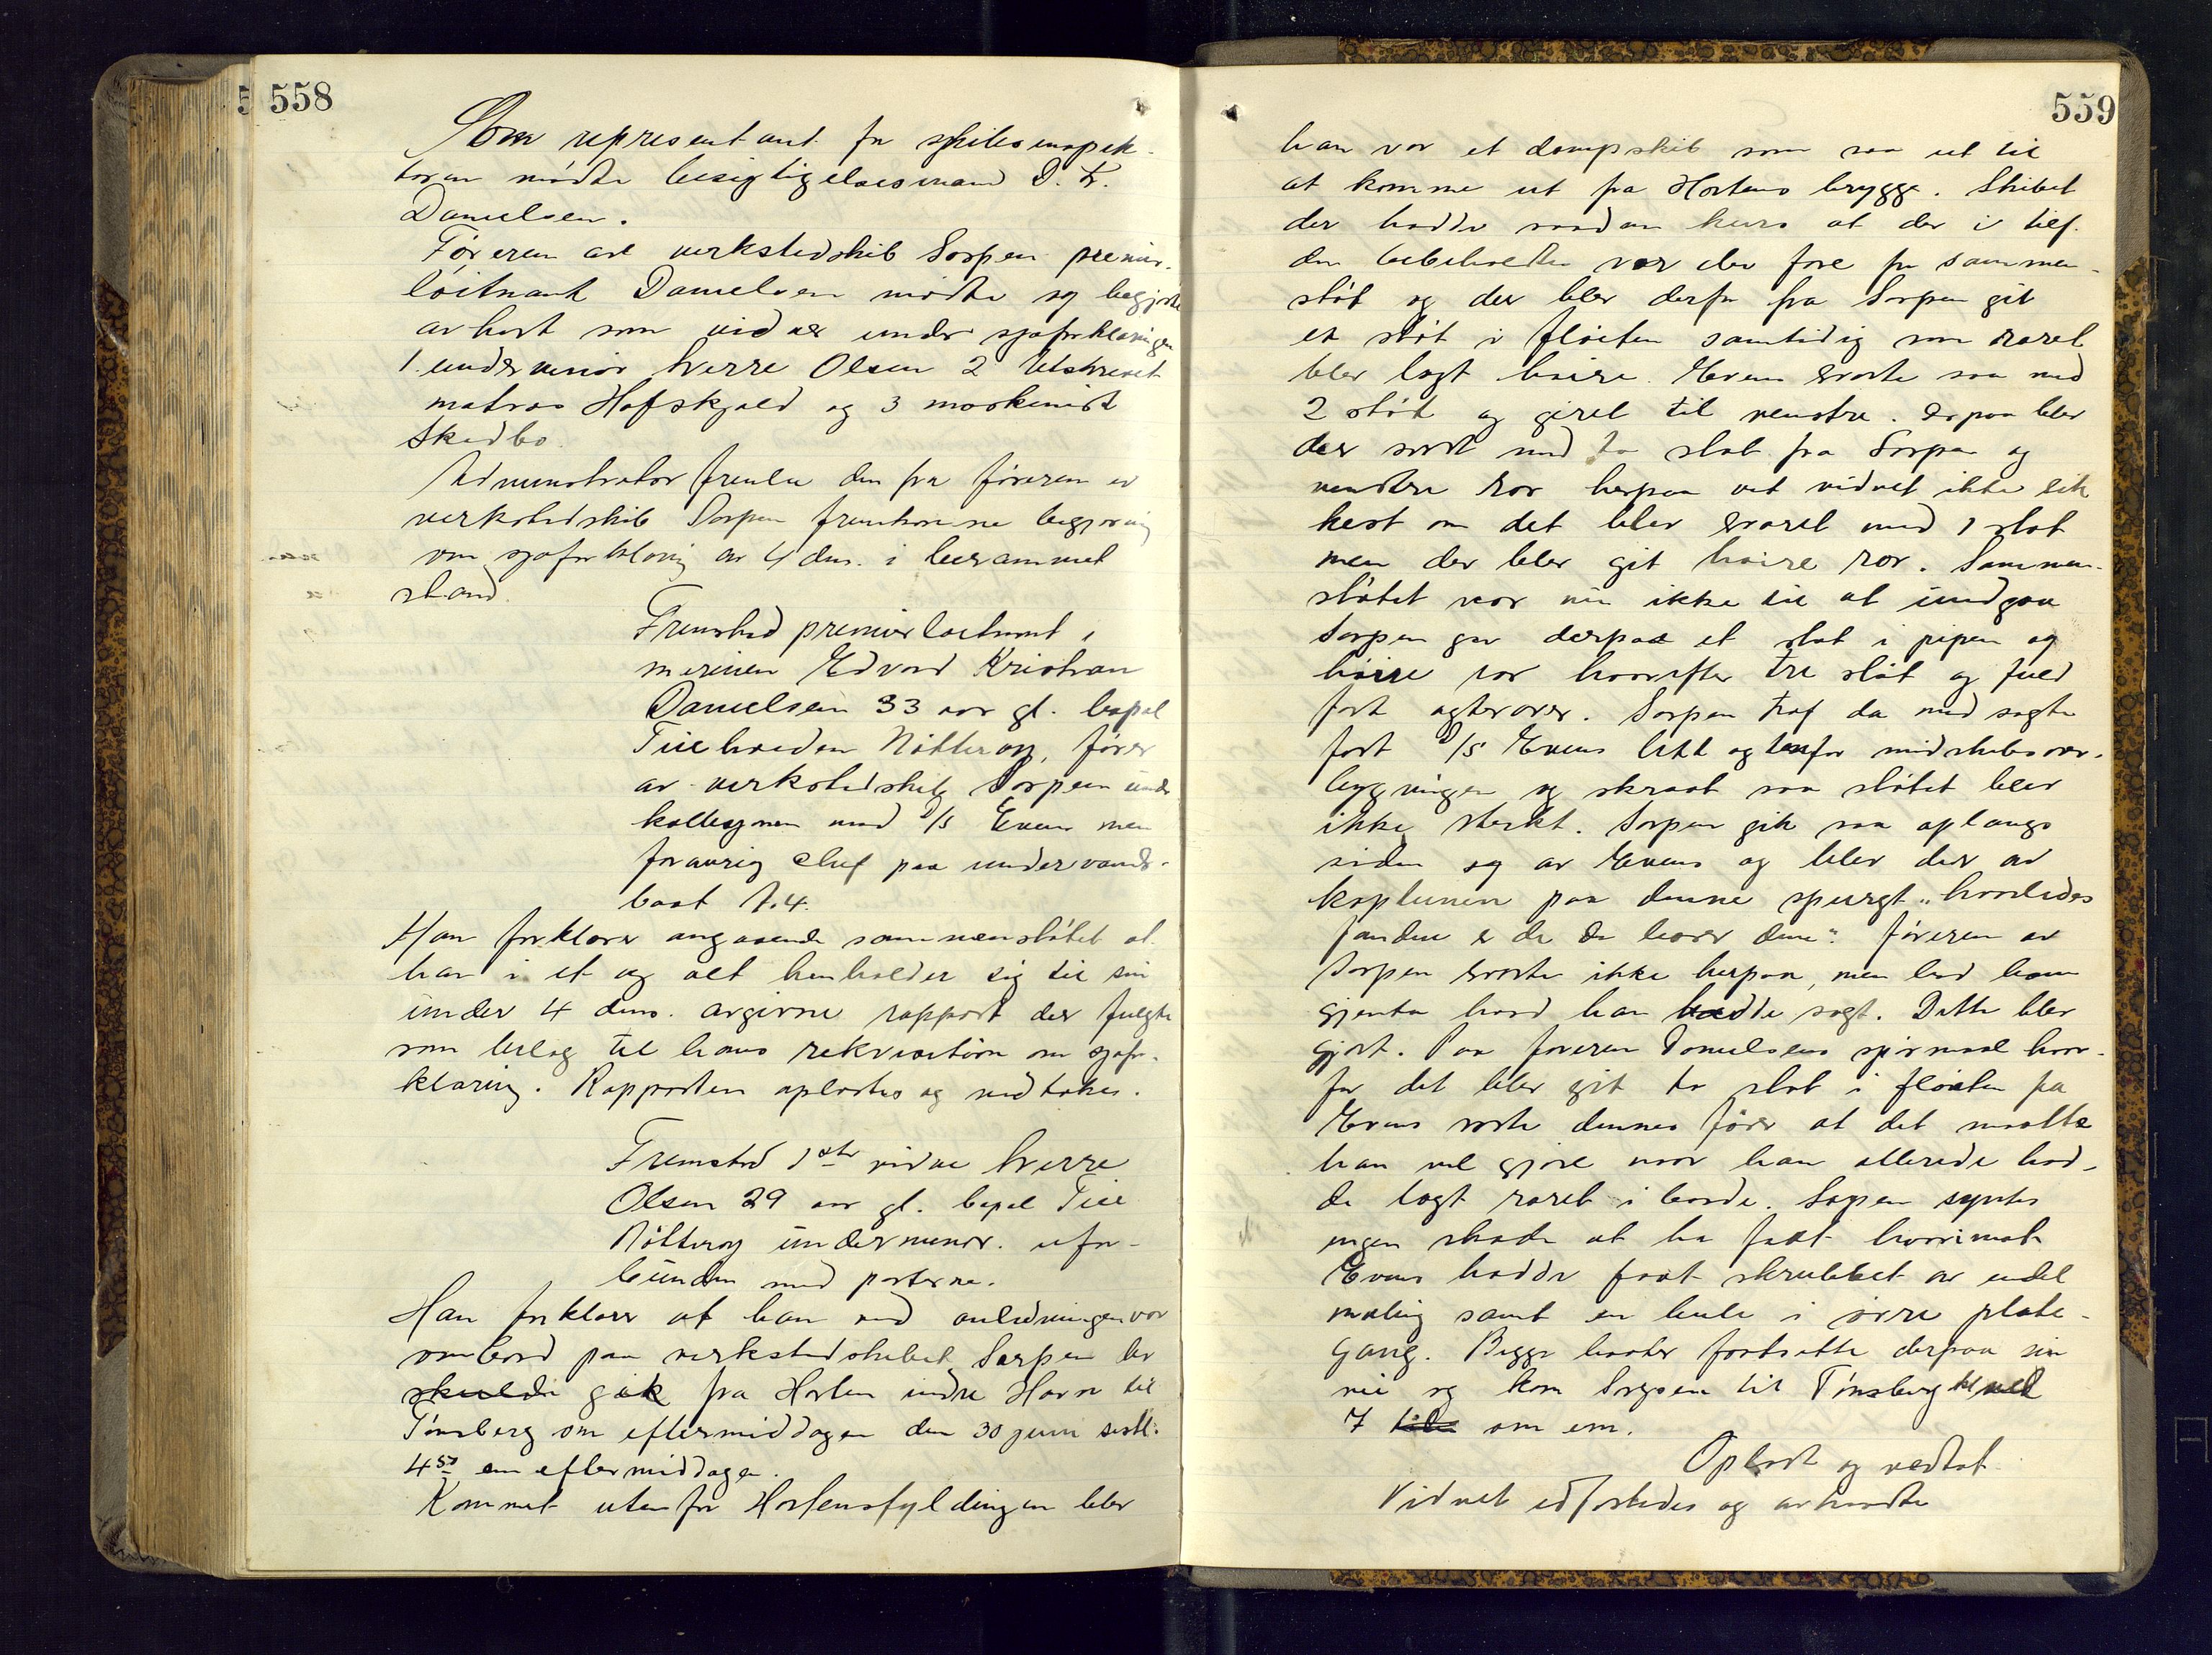 558
Som representant for skibsinspek-
toren mødte besigtigelsesmand D. Fr.
Danielsen.
Føreren av verkstedskib Sarpen premier-
løitnant Danielsen mødte og begjærte
avhørt som vidner under sjøforklaringen
1. underminør Sverre Olsen 2 Utskrevet
matros Hafskjold og 3 maskinist
Skedbo.
Administrator fremla den fra føreren av
verkstedskib Sarpen fremkomne begjæring
om sjøforklaring av 4 dns. i berammet
stand.
Fremstod premierløitnant i
marinen Edvard Kristian
Danielsen 33 aar gl. bopæl
Tueheden Nøtterøy, fører
av verkstedskib Sarpen under
kollisjonen med D/S Evens men
forøvrig chef paa undervands-
baat A.4.
Han forklarer angaaende sammenstøtet at
han i et og alt henholder sig til sin
under 4 dens. avgivne rapport der fulgte
som bilag til hans rekvisition om sjøfor-
klaring. Rapporten oplæstes og vedtokes.
Fremstod 1ste vidne Sverre
Olsen 29 aar gl. bopæl Tue
Nøtterøy underminør. ufor-
bunden med parterne.
Han forklarer at han ved anledningen var
ombord paa verkstedskibet Sarpen der
skulde gik fra Horten indre Havn til
Tønsberg om eftermiddagen den 30 juni sistl.
4⁵⁰ em eftermiddagen.
Kommet utenfor Hortensfyldingen blev
559
han var et dampskib som saa ut til
at komme ut fra Hortens brygge. Skibet
der hadde saadan kurs at der i tilf.
den bibeholdtes var der fare for sammen-
støt og der blev derfor fra Sarpen git
et støt i fløiten samtidig som roret
blev lagt høire. Evens svarte saa med
2 støt og giret til venstre. Derpaa blev
der svart med to støt fra Sarpen og
venstre ror herpaa vet vidnet ikke sik
kert om det blev svaret med 1 støt
men der blev git høire ror. Sammen-
støtet var nu ikke til at undgaa
Sarpen gav derpaa et støt i pipen og
høire ror hvorefter tre støt og fuld
fart agterover. Sarpen traf da med sagte
fart D/S Evens litt agtenfor midtskibsover-
bygningen og skraat saa støtet blev
ikke sterkt. Sarpen gik saa oplangs
siden av Evens og blev der av
kapteinen paa denne spurgt „hvorledes
fanden er det De bærer Dem“. Føreren av
Sarpen svarte ikke herpaa, men bad ham
gjenta hvad han hadde sagt. Dette blev
gjort. Paa føreren Danielsens spørmaal hvor-
for det blev git to støt i fløiten fra
Evens svarte dennes fører at det maatte
han vel gjøre naar han allerede had-
de lagt roret i borde. Sarpen syntes
ingen skade at ha faat hvorimot
Evens hadde faat skrubbet av endel
maling samt en bule i øvre plate-
gang. Begge baater fortsatte derpaa sin
vei og kom Sarpen til Tønsberg kl ved
7 tiden om em.
Oplæst og vedtat.
Vidnet edfæstedes og avtraadte